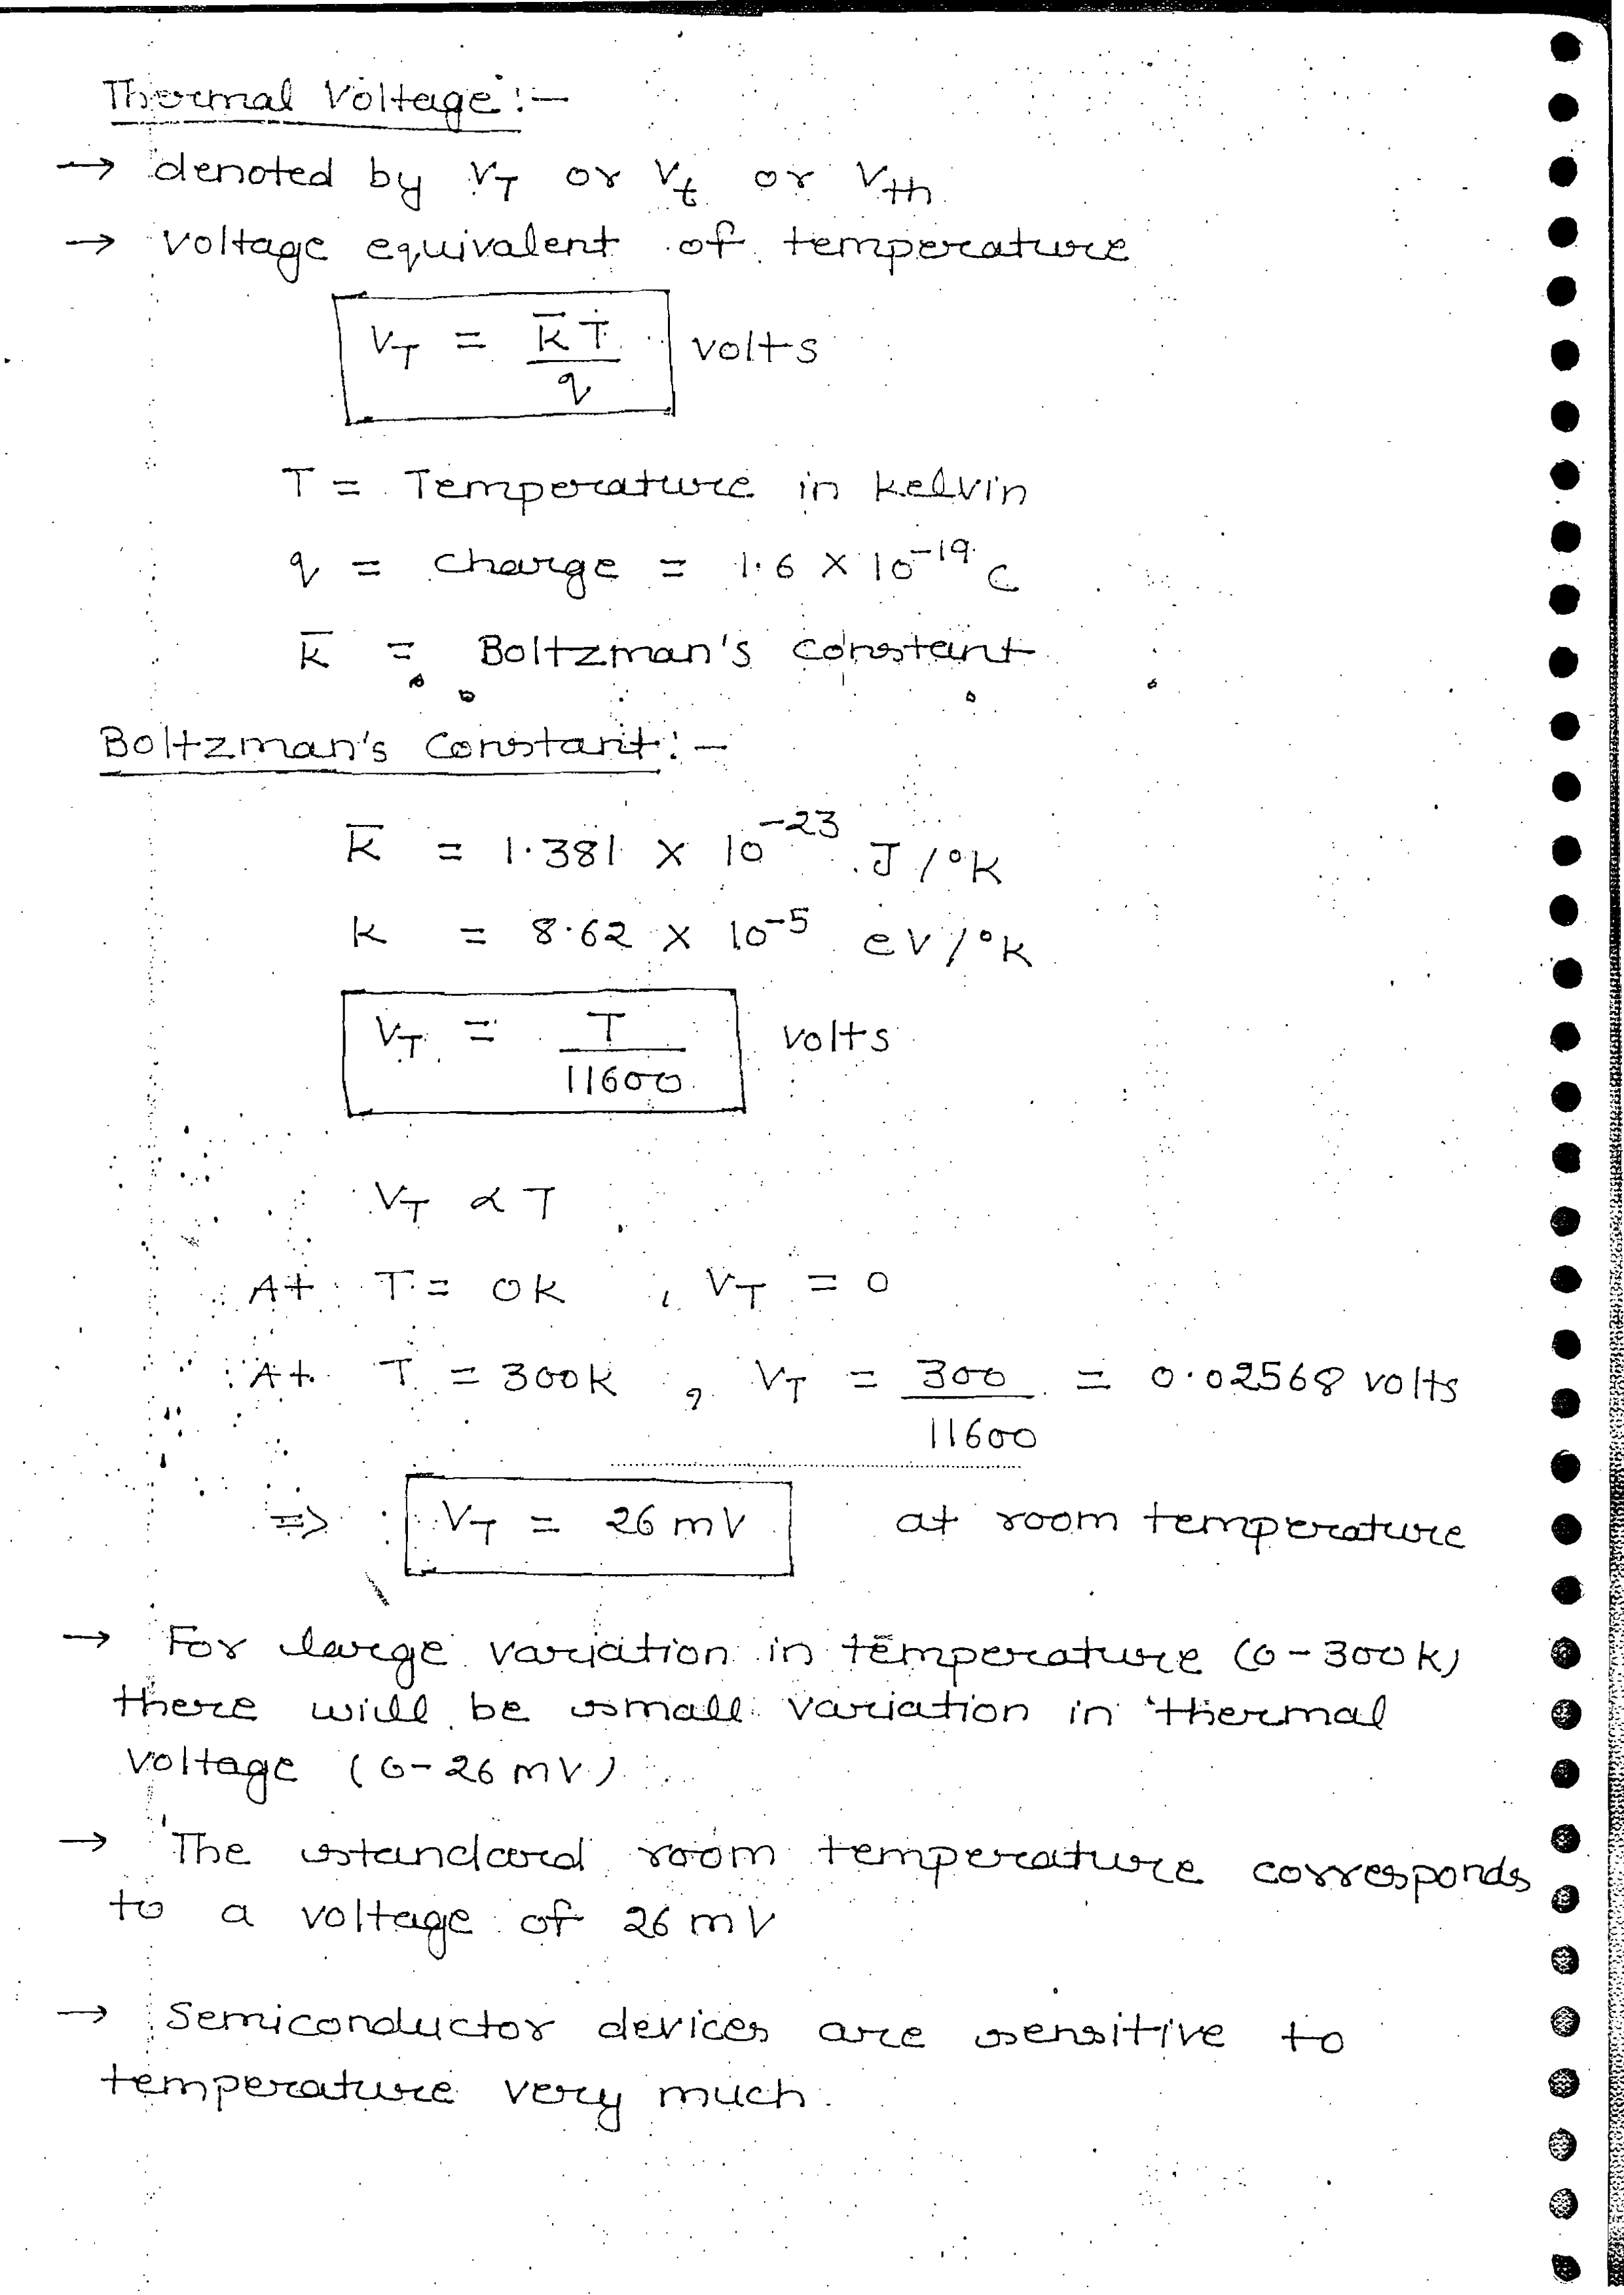 Thermal Voltage :-
→ denoted by V_T or V_t or V_th
→ Voltage equivalent of temperature
V_T = k̅T / q volts
T = Temperature in kelvin
q = charge = 1.6 × 10^-19 C
k̅ = Boltzman's constant
Boltzman's Constant :-
k̅ = 1.381 × 10^-23 J/°K
k = 8.62 × 10^-5 eV/°K
V_T = T / 11600 volts
V_T ∝ T
At T = 0K , V_T = 0
At T = 300K , V_T = 300 / 11600 = 0.02568 volts
⇒ V_T = 26 mV at room temperature
→ For large variation in temperature (0-300K)
there will be small variation in thermal
voltage (0-26 mV)
→ The standard room temperature corresponds
to a voltage of 26 mV
→ Semiconductor devices are sensitive to
temperature very much.